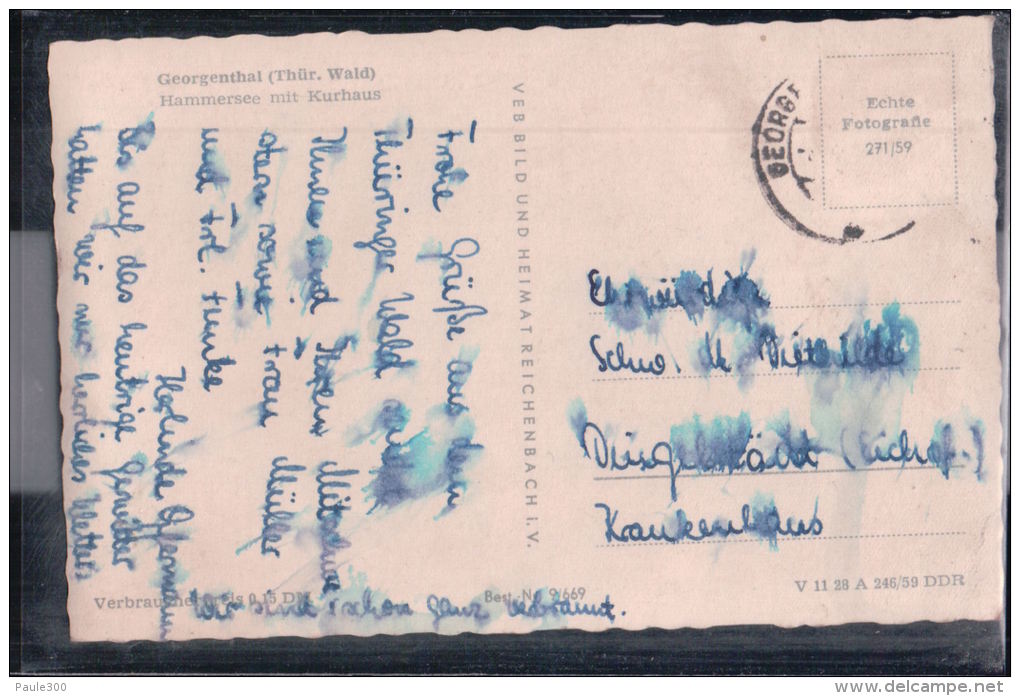 Georgenthal (Thür. Wald)
Hammersee mit Kurhaus
Frohe Grüße aus dem
Thüringer Wald
Ihnen und Ihren
stern sowie Frau Müller
und Frl. Funke
Bis auf das heutige Gewitter
hatten wir nur herrliches Wetter
Wir sind schon ganz verbrannt.
VEB BILD UND HEIMAT REICHENBACH I. V.
Echte
Fotografie
271/59
GEORGE
Ehrwürdige
Schw. M. Diethilde
Dingelstädt (Eichsf.)
Krankenhaus
Verbraucherpreis 0,15 DM
Best.-Nr. 9/669
V 11 28 A 246/59 DDR
Paule300
www.delcampe.net